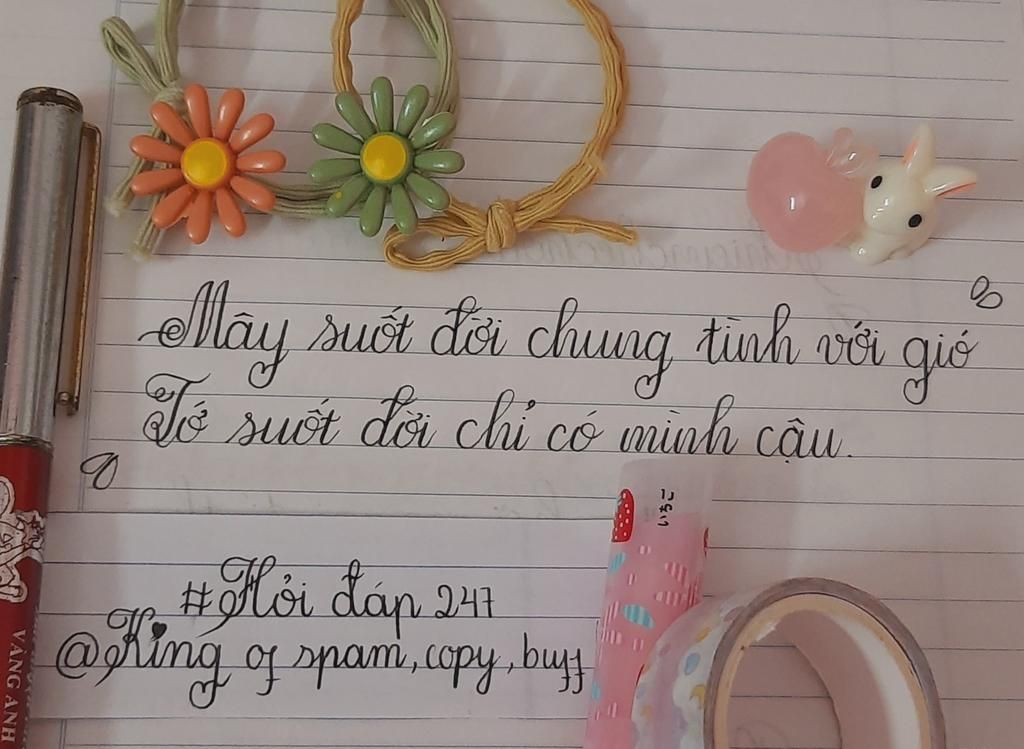 Mây suốt đời chung tình với gió
Tớ suốt đời chỉ có mình cậu.
いちご
#Hỏi đáp 247
@King of spam, copy, buff
VANG ANH